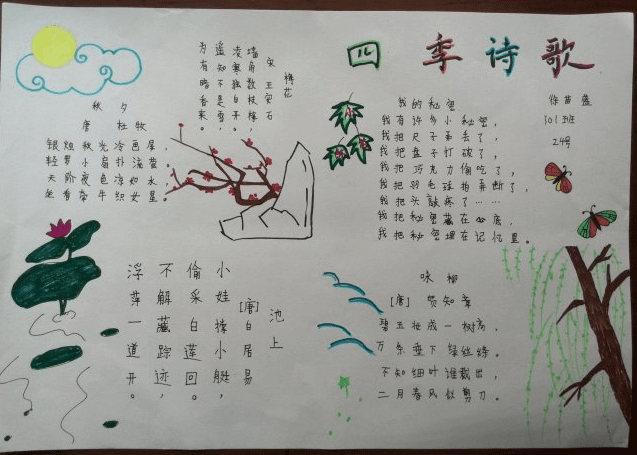 四季诗歌
徐苗盛
301班
24号
我的秘密
我有许多小秘密,
我把尺子弄丢了,
我把盘子打破了,
我把巧克力偷吃了,
我把羽毛球拍弄断了,
我把头敲疼了……
我把秘密藏在心底,
我把秘密埋在记忆里。
梅花
宋 王安石
墙角数枝梅,
凌寒独自开。
遥知不是雪,
为有暗香来。
秋夕
唐 杜牧
银烛秋光冷画屏,
轻罗小扇扑流萤。
天阶夜色凉如水,
坐看牵牛织女星。
池上
[唐]白居易
小娃撑小艇,
偷采白莲回。
不解藏踪迹,
浮萍一道开。
咏柳
[唐] 贺知章
碧玉妆成一树高,
万条垂下绿丝绦。
不知细叶谁裁出,
二月春风似剪刀。